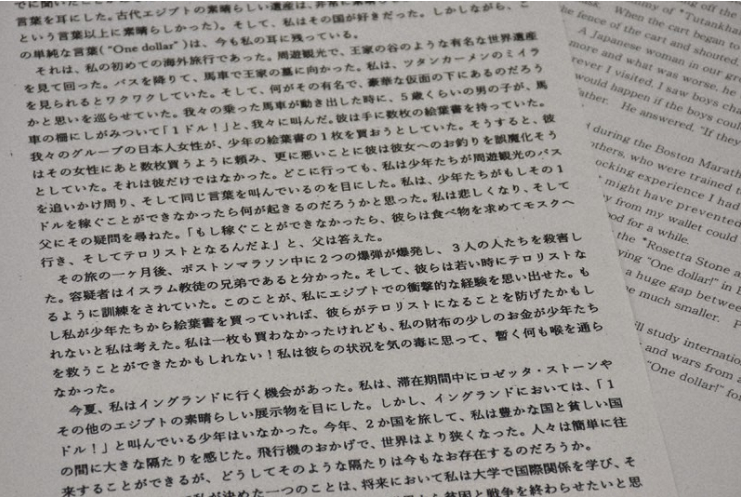 でに聞いたこと
言葉を耳にした。古代エジプトの素晴らしい遺産は、非常に
という言葉以上に素晴らしかった）。そして、私はその国が好きだった。しかしながら、こ
の単純な言葉（“One dollar”）は、今も私の耳に残っている。
それは、私の初めての海外旅行であった。周遊観光で、王家の谷のような有名な世界遺産
を見て回った。バスを降りて、馬車で王家の墓に向かった。私は、ツタンカーメンのミイラ
を見られるとワクワクしていた。そして、何がその有名で、豪華な仮面の下にあるのだろう
かと思いを巡らせていた。我々の乗った馬車が動き出した時に、５歳くらいの男の子が、馬
車の柵にしがみついて「１ドル！」と、我々に叫んだ。彼は手に数枚の絵葉書を持っていた。
我々のグループの日本人女性が、少年の絵葉書の１枚を買おうとしていた。そうすると、彼
はその女性にあと数枚買うように頼み、更に悪いことに彼は彼女へのお釣りを誤魔化そう
としていた。それは彼だけではなかった。どこに行っても、私は少年たちが周遊観光のバス
を追いかけ周り、そして同じ言葉を叫んでいるのを目にした。私は、少年たちがもしその１
ドルを稼ぐことができなかったら何が起きるのだろうかと思った。私は悲しくなり、そして
父にその疑問を尋ねた。「もし稼ぐことができなかったら、彼らは食べ物を求めてモスクへ
行き、そしてテロリストとなるんだよ」と、父は答えた。
その旅の一ヶ月後、ボストンマラソン中に２つの爆弾が爆発し、３人の人たちを殺害し
た。容疑者はイスラム教徒の兄弟であると分かった。そして、彼らは若い時にテロリストな
るように訓練をされていた。このことが、私にエジプトでの衝撃的な経験を思い出せた。も
し私が少年たちから絵葉書を買っていれば、彼らがテロリストになることを防げたかもし
れないと私は考えた。私は一枚も買わなかったけれども、私の財布の少しのお金が少年たち
を救うことができたかもしれない！私は彼らの状況を気の毒に思って、暫く何も喉を通ら
なかった。
今夏、私はイングランドに行く機会があった。私は、滞在期間中にロゼッタ・ストーンや
その他のエジプトの素晴らしい展示物を目にした。しかし、イングランドにおいては、「１
ドル！」と叫んでいる少年はいなかった。今年、２か国を旅して、私は豊かな国と貧しい国
の間に大きな隔たりを感じた。飛行機のおかげで、世界はより狭くなった。人々は簡単に往
来することができるが、どうしてそのような隔たりは今もなお存在するのだろうか。
私が決めた一つのことは、将来において私は大学で国際関係を学び、そ
貧困と戦争を終わらせたいと思
ng off the
mummy of "Tutankhan
mask. When the cart began to
he fence of the cart and shouted.
A Japanese woman in our gr
more and what was worse, he
ever I visited, I saw boys cha
would happen if the boys coul
father. He answered, "If they
d during the Boston Marath
others, who were trained t
ocking experience I had
might have prevented
y from my wallet could
ood for a while.
the "Rosetta Stone a
ying "One dollar!" in E
a huge gap between
be much smaller. P
ill study internation
and wars from a
"One dollar!" for